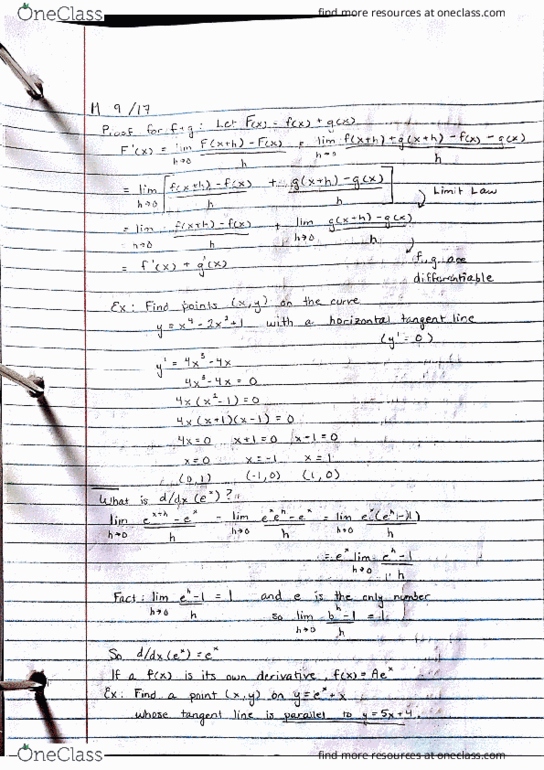 OneClass find more resources at oneclass.com
M 9/17
Proof for f+g: Let F(x) = f(x) + g(x)
F'(x) = lim h→0 F(x+h) - F(x) / h = lim h→0 f(x+h) + g(x+h) - f(x) - g(x) / h
= lim h→0 [ f(x+h) - f(x) / h + g(x+h) - g(x) / h ] Limit Law
= lim h→0 f(x+h) - f(x) / h + lim h→0 g(x+h) - g(x) / h
= f'(x) + g'(x) f, g are
differentiable
Ex: Find points (x,y) on the curve
y = x⁴ - 2x²+1 with a horizontal tangent line
(y' = 0)
y' = 4x³ - 4x
4x³ - 4x = 0
4x(x² - 1) = 0
4x(x+1)(x-1) = 0
4x=0 x+1=0 x-1=0
x=0 x=-1 x=1
(0,1) (-1,0) (1,0)
What is d/dx (eˣ)?
lim h→0 eˣ⁺ʰ - eˣ / h = lim h→0 eˣeʰ - eˣ / h = lim h→0 eˣ(eʰ-1) / h
= eˣ lim h→0 eʰ-1 / h
Fact: lim h→0 eʰ-1 / h = 1 and e is the only number
so lim h→0 bʰ-1 / h = 1
So d/dx(eˣ) = eˣ
If a f(x) is its own derivative, f(x) = Aeˣ
Ex: Find a point (x,y) on y = eˣ + x
whose tangent line is parallel to y = 5x+4.
OneClass find more resources at oneclass.com